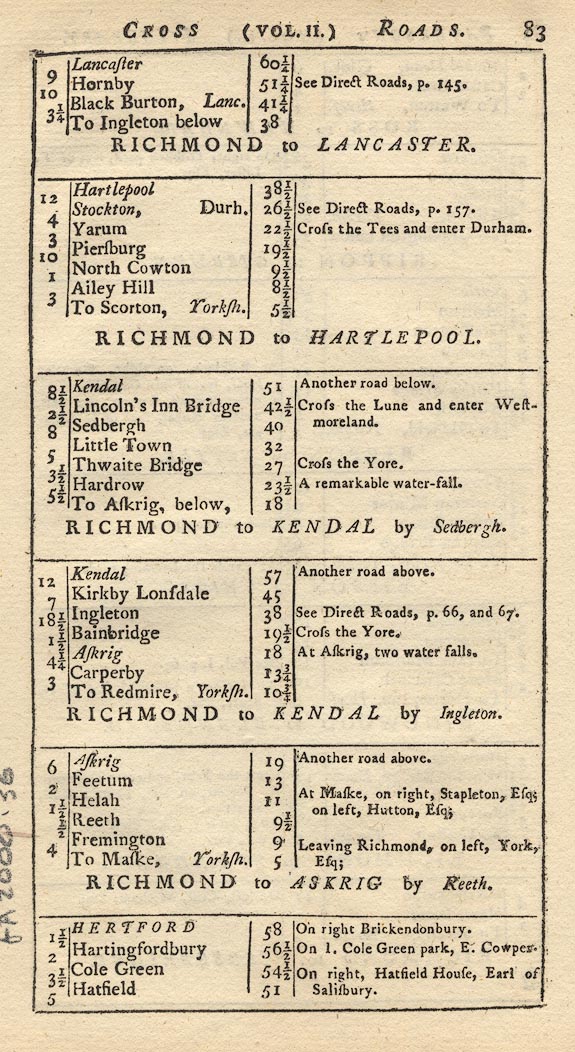 CROSS (VOL. II.) ROADS. 83
Lancaſter 60½
9 Hornby 51¼ See Direct Roads, p. 145.
10 Black Burton, Lanc. 41¼
3¼ To Ingleton below 38
RICHMOND to LANCASTER.
Hartlepool 38½
12 Stockton, Durh. 26½ See Direct Roads, p. 157.
4 Yarum 22½ Croſs the Tees and enter Durham.
3 Pierſburg 19½
10 North Cowton 9½
1 Ailey Hill 8½
3 To Scorton, Yorkſh. 5½
RICHMOND to HARTLEPOOL.
Kendal 51 Another road below.
8½ Lincoln's Inn Bridge 42½ Croſs the Lune and enter Weſt-
2½ Sedbergh 40 moreland.
8 Little Town 32
5 Thwaite Bridge 27 Croſs the Yore.
3½ Hardrow 23½ A remarkable water-fall.
5½ To Aſkrig, below, 18
RICHMOND to KENDAL by Sedbergh.
Kendal 57 Another road above.
12 Kirkby Lonſdale 45
7 Ingleton 38 See Direct Roads, p. 66, and 67.
18½ Bainbridge 19½ Croſs the Yore.
1½ Aſkrig 18 At Aſkrig, two water falls.
4¼ Carperby 13¾
3 To Redmire, Yorkſh. 10¾
RICHMOND to KENDAL by Ingleton.
Aſkrig 19 Another road above.
6 Feetum 13
2 Helah 11 At Maſke, on right, Stapleton, Eſq;
1½ Reeth 9½ on left, Hutton, Eſq;
½ Fremington 9 Leaving Richmond, on left, York,
4 To Maſke, Yorkſh. 5 Eſq;
RICHMOND to ASKRIG by Reeth.
HERTFORD 58 On right Brickendonbury.
1½ Hartingfordbury 56½ On l. Cole Green park, E. Cowper.
2 Cole Green 54½ On right, Hatfield Houſe, Earl of
3½ Hatfield 51 Saliſbury.
5